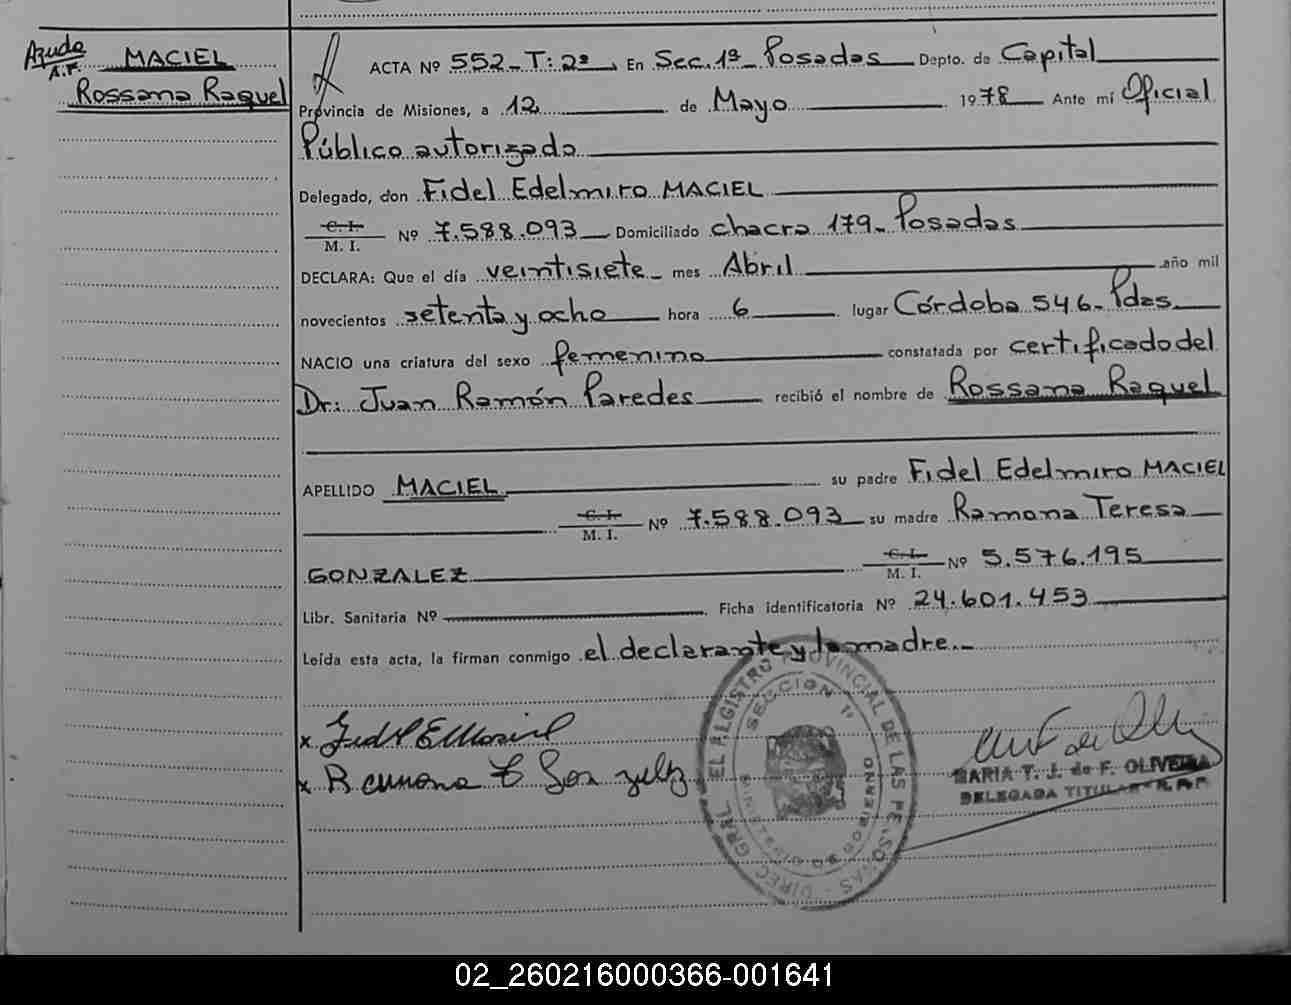 Azuda
A.F.
MACIEL
Rossana Raquel
ACTA Nº 552_T:2º En Sec.1ª Posadas Depto. de Capital
Provincia de Misiones, a 12 de Mayo 1978 Ante mí Oficial
Público autorizado
Delegado, don Fidel Edelmiro MACIEL
C. I.
M. I. Nº 7.588.093 Domiciliado chacra 179_ Posadas
DECLARA: Que el día veintisiete_ mes Abril año mil
novecientos setenta y ocho hora 6 lugar Córdoba 546_ Pdas
NACIO una criatura del sexo femenino constatada por certificado del
Dr: Juan Ramón Paredes recibió el nombre de Rossana Raquel
APELLIDO MACIEL su padre Fidel Edelmiro MACIEL
C. I.
M. I. Nº 7.588.093 su madre Ramona Teresa
GONZALEZ C. I.
M. I. Nº 5.576.195
Libr. Sanitaria Nº Ficha identificatoria Nº 24.601.453
Leída esta acta, la firman conmigo el declarante y la madre._
x Fidel E Maciel
x Ramona T Gonzalez
DIREC. GRAL. EL REGISTRO PROVINCIAL DE LAS PERSONAS
SECCION 1ª
MINISTERIO DE GOBIERNO
MARIA T. J. de F. OLIVEIRA
DELEGADA TITULAR
02_260216000366-001641